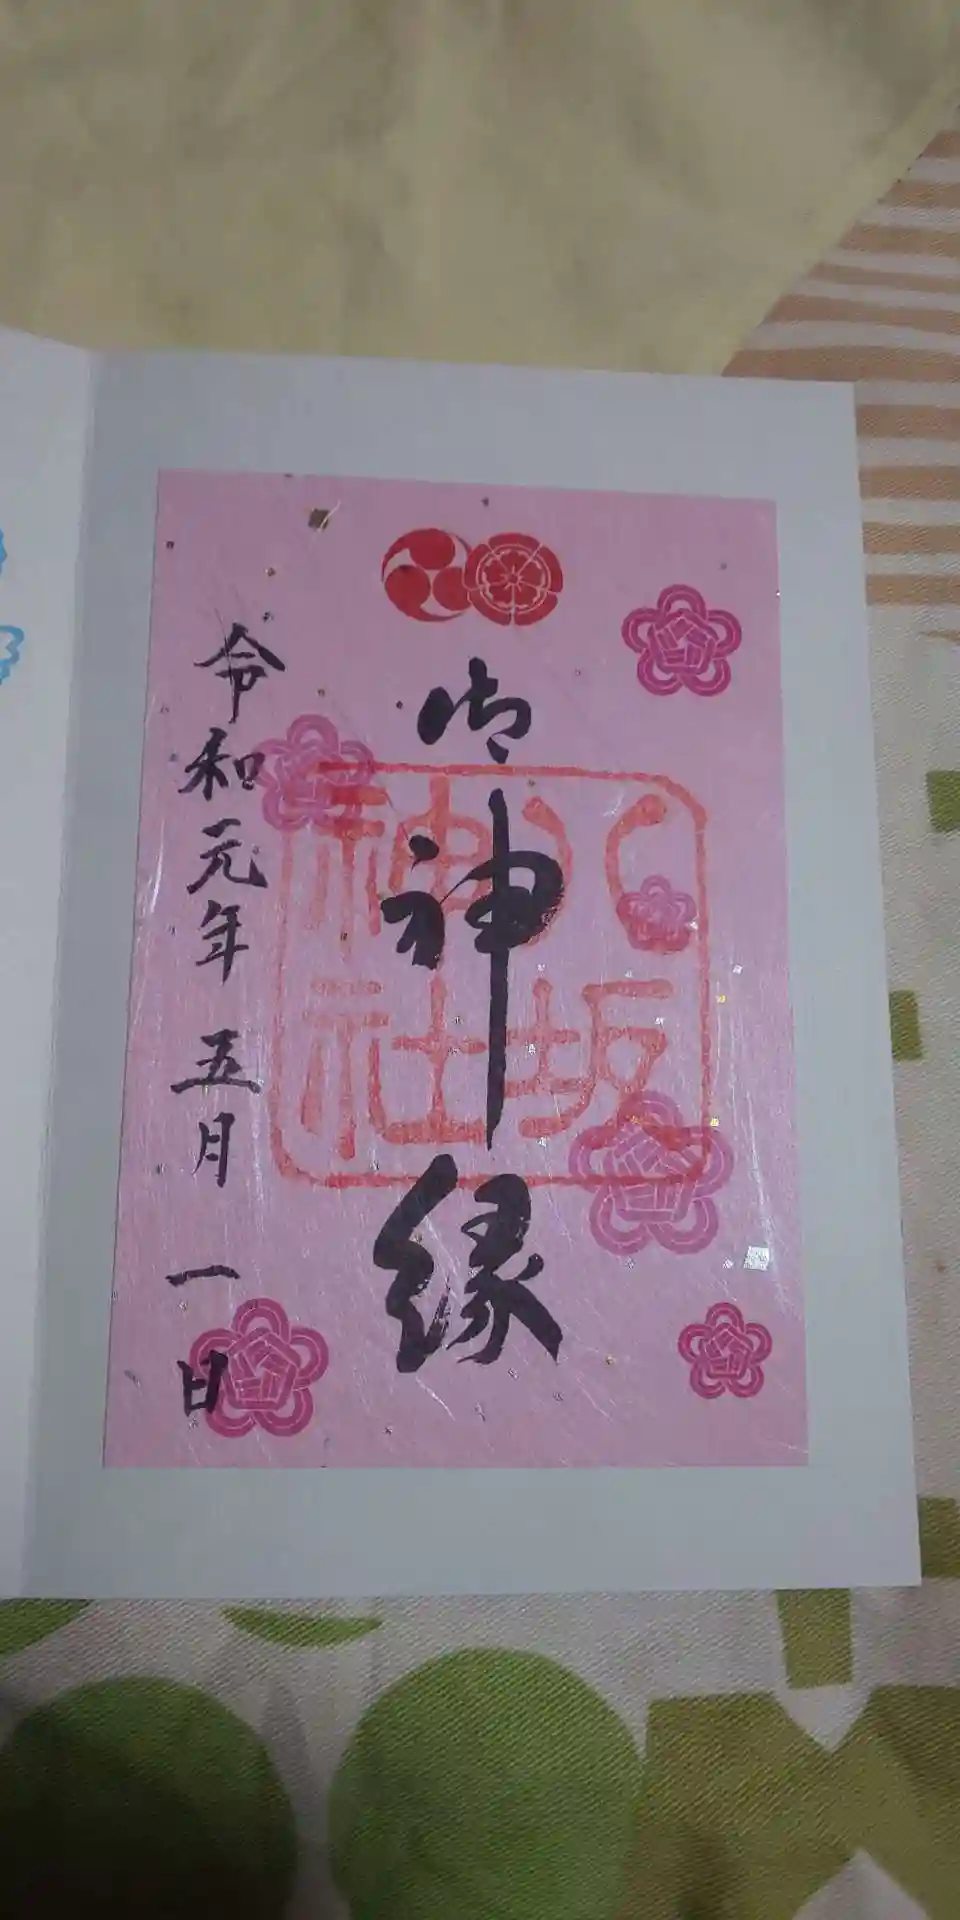 御神縁
八坂神社
令和元年 五月 一日